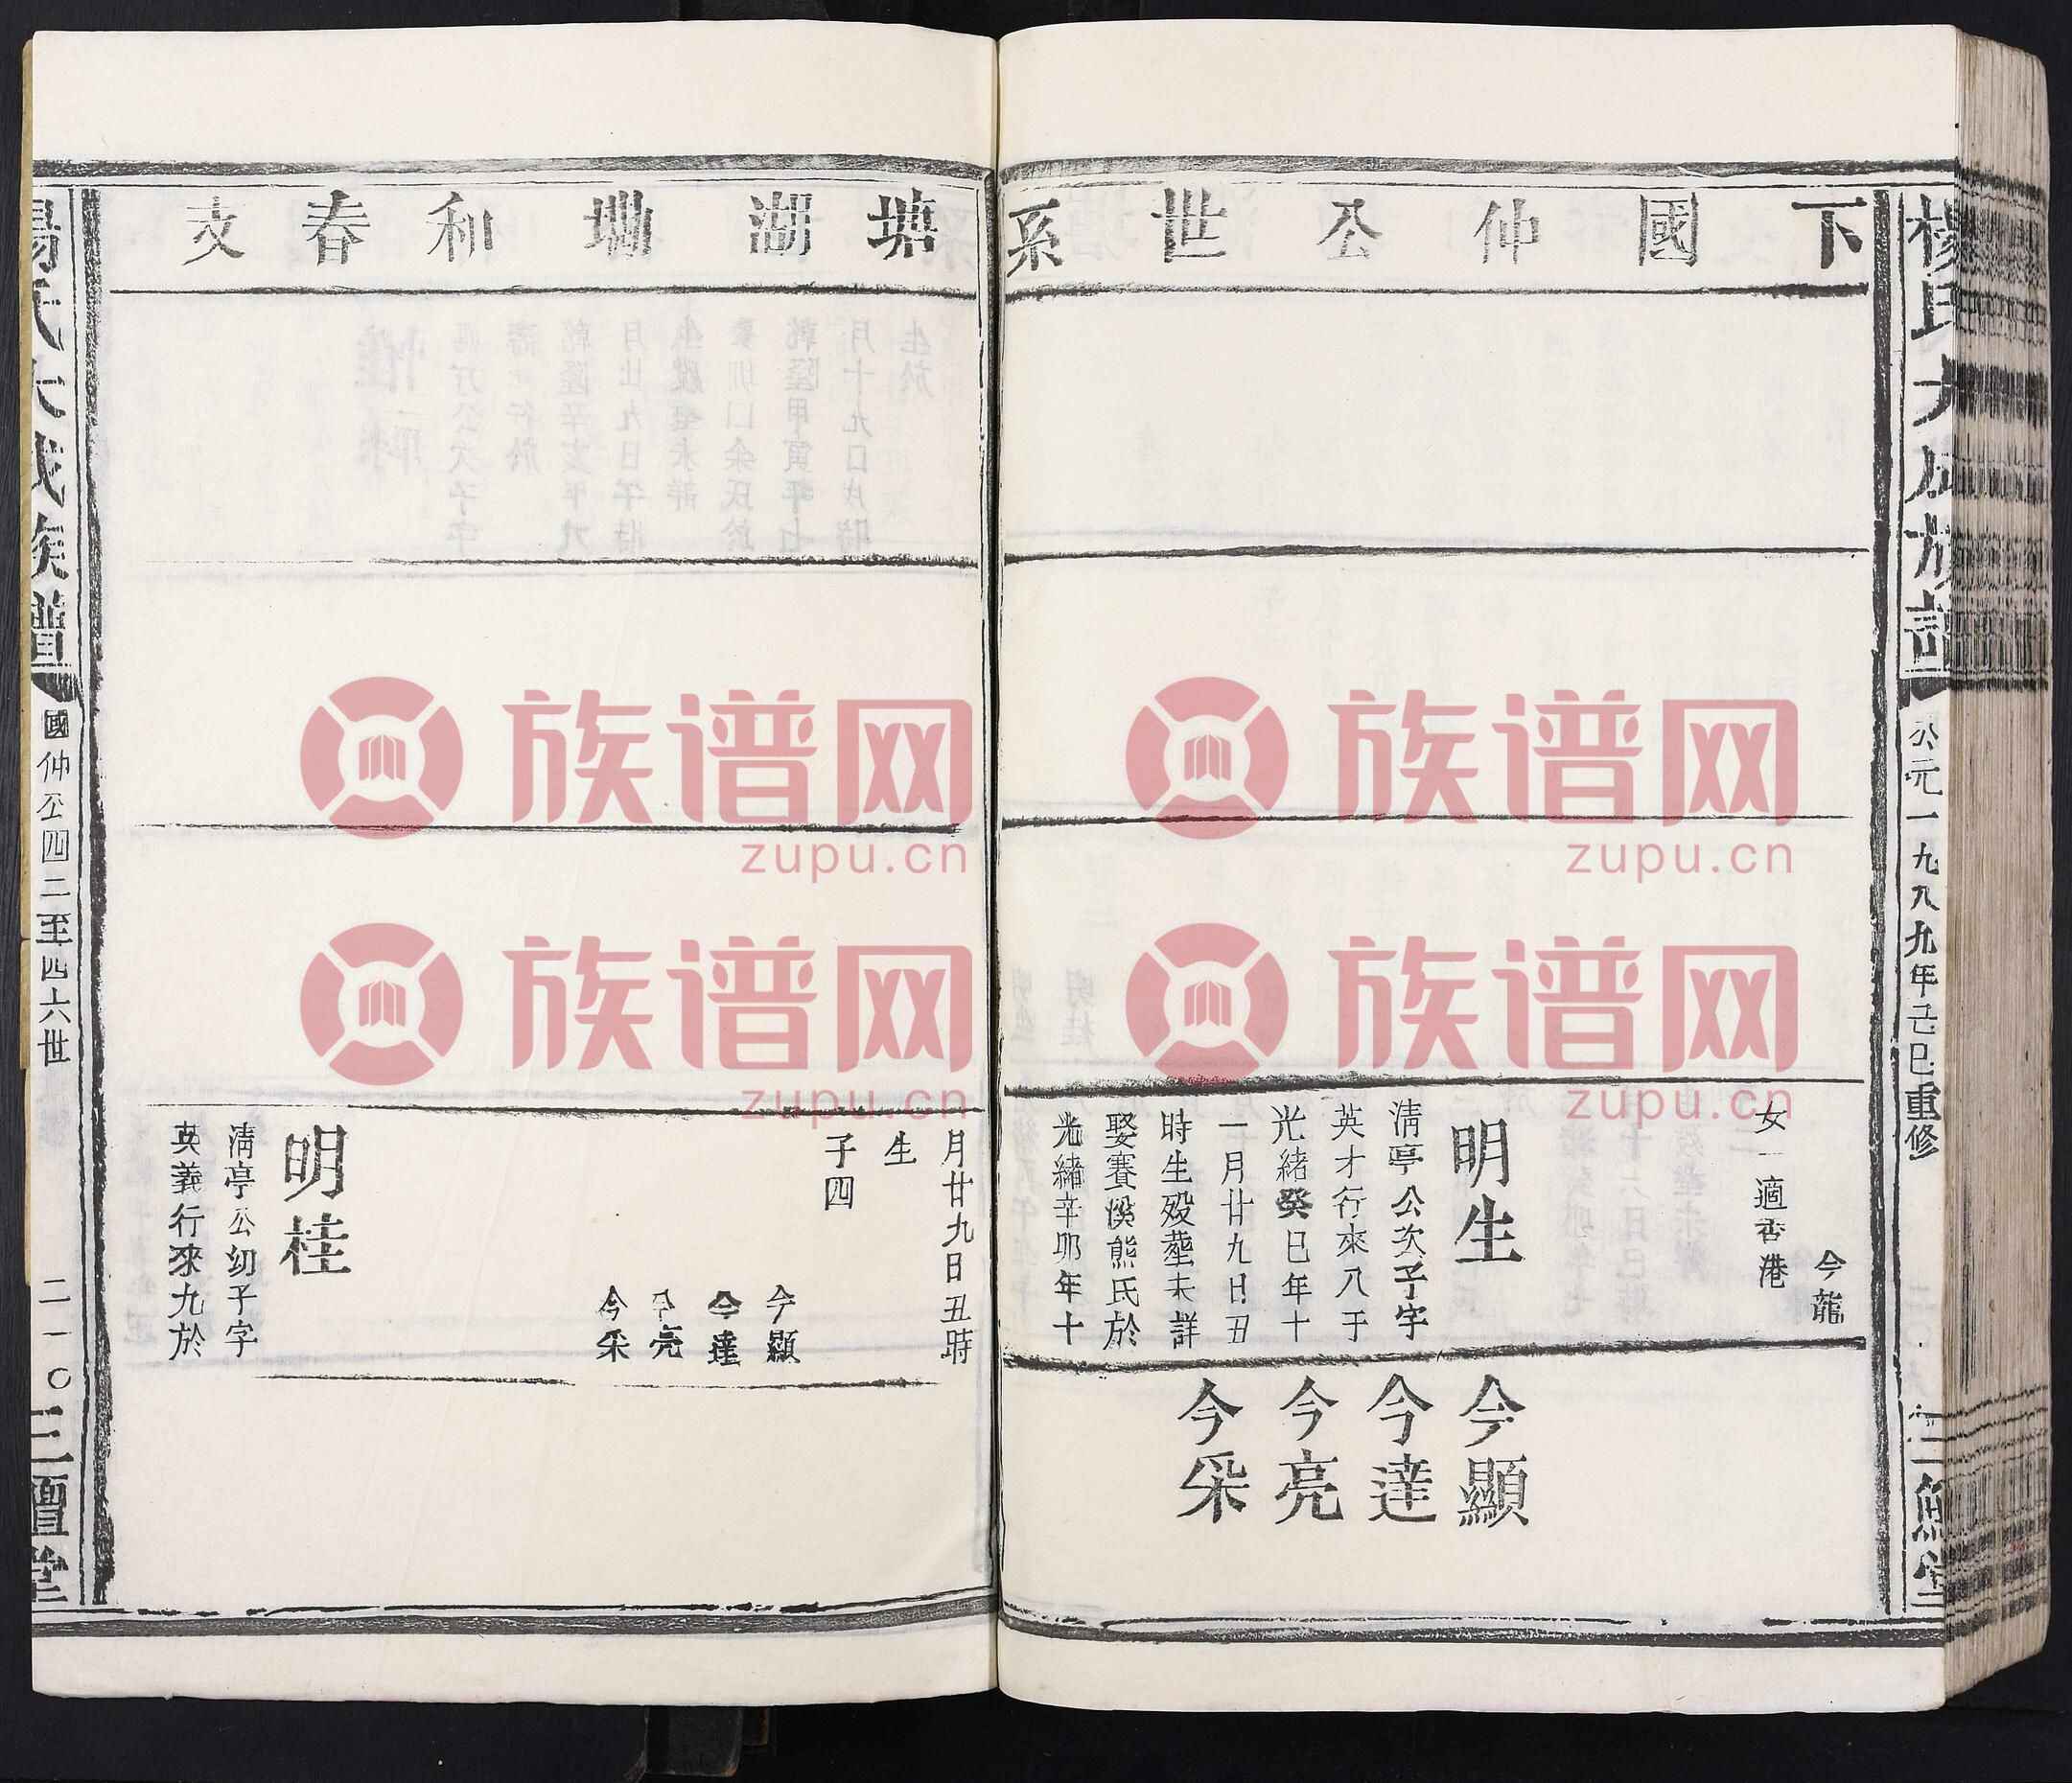 下國仲公世系
今龍
女一適香港
明生
清亭公次子字
英才行來八于
光緒癸巳年十
一月廿九日丑
時生殁塟未詳
娶賽溪熊氏於
光緒辛卯年十
今顯
今達
今亮
今采
公元一九八九年己巳重修
塘湖坳和春支
月廿九日丑時
生
子四
今顯
今達
今亮
今采
明桂
清亭公幼子字
英義行來九於
國仲公四二至四六世
二一〇
族谱网
zupu.cn
族谱网
zupu.cn
族谱网
zupu.cn
族谱网
zupu.cn